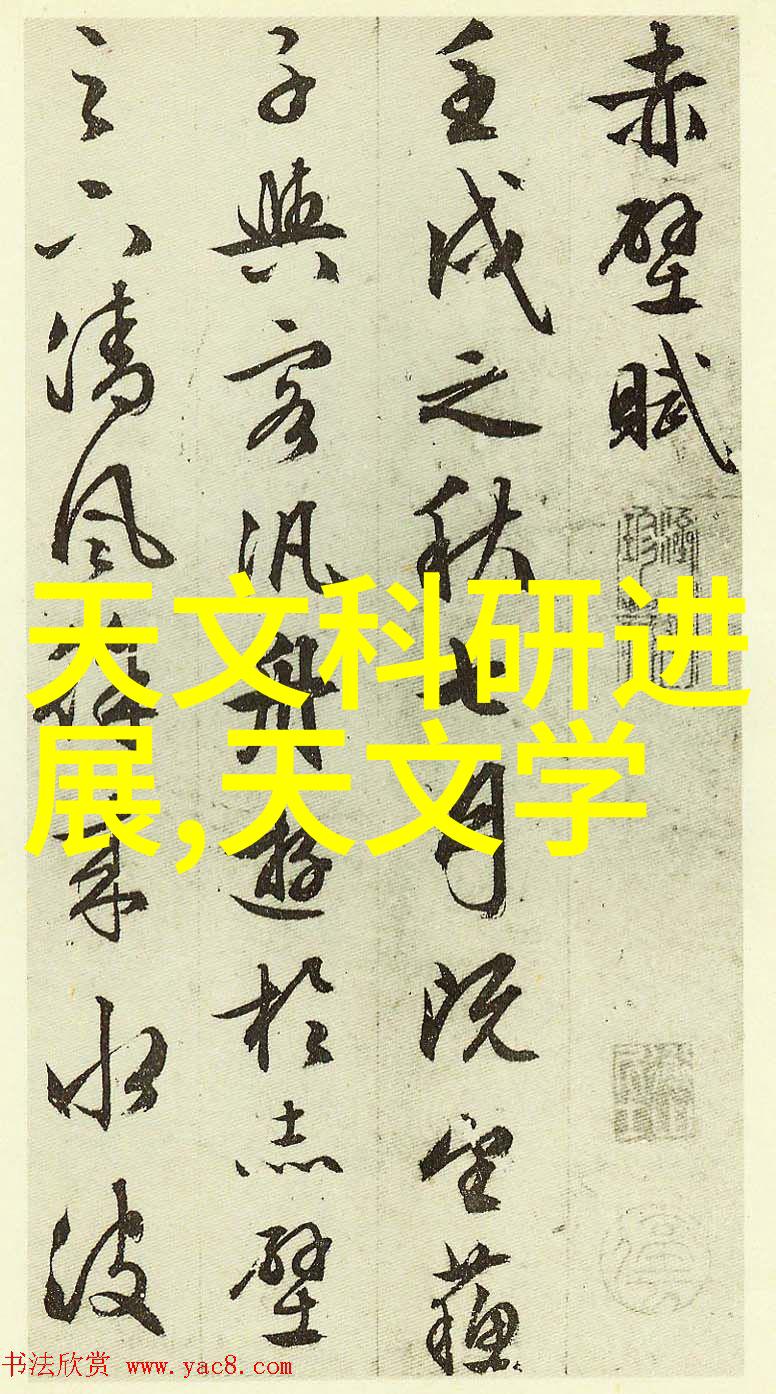 赤壁賦
壬戌之秋七月既望蘇
子與客汎舟遊於赤壁
之下清風徐来水波
天文科研进
展,天文学
书法欣赏 www.yac8.com